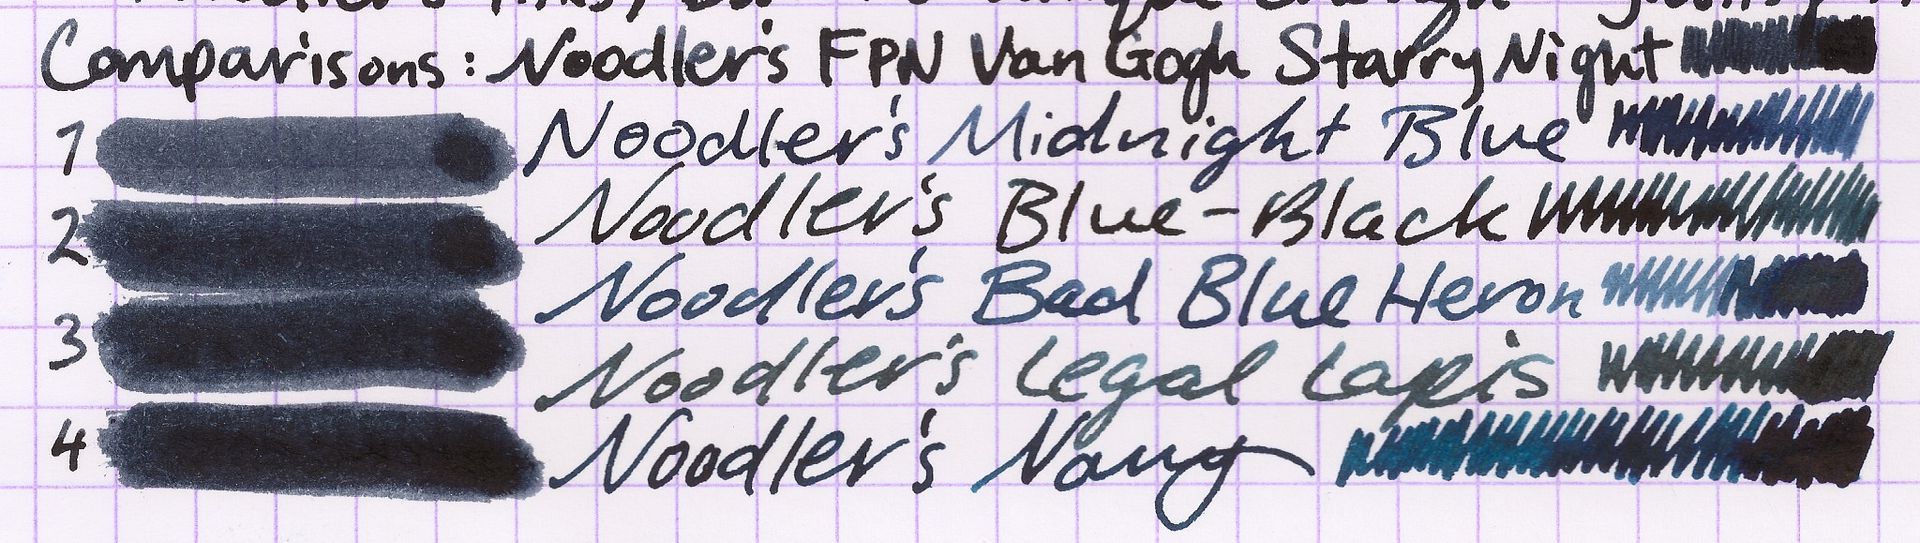 Comparisons: Noodler's FPN Van Gogh Starry Night
1 Noodler's Midnight Blue
2 Noodler's Blue-Black
3 Noodler's Bad Blue Heron
Noodler's Legal Lapis
4 Noodler's Navy